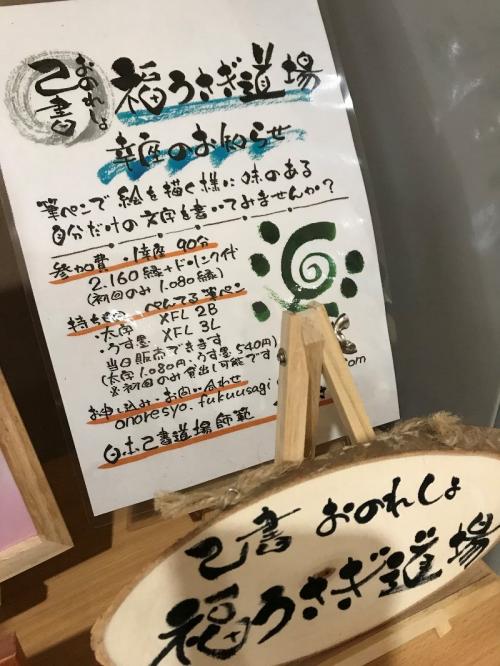 己書
おのれしょ
福うさぎ道場
幸座のお知らせ
筆ペンで絵を描く様に味のある
自分だけの文字を書いてみませんか?
参加費・1幸座 90分
2.160縁+ドリンク代
(初回のみ1.080縁)
ぺんてる筆ペン
・太字 XFL 2B
・うす墨 XFL 3L
当日販売できます
(太字1.080円・うす墨540円)
※初回のみ貸出し可能です
お申し込み・お問い合わせ
onoresyo.fukuusagi
com
日本己書道場師範
己書 おのれしょ
福うさぎ道場